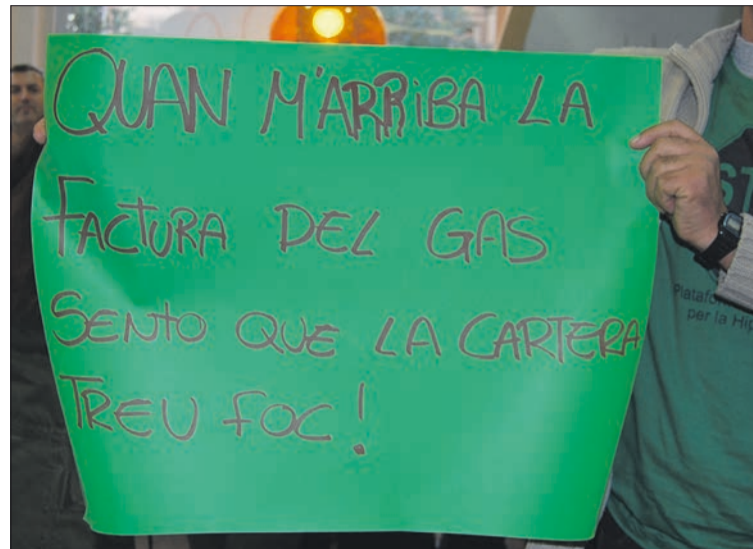 QUAN M'ARRiBA LA
FACTURA DEL GAS
SENTO QUE LA CARTERA
TREU FOC!
ST
Platafo
per la Hip